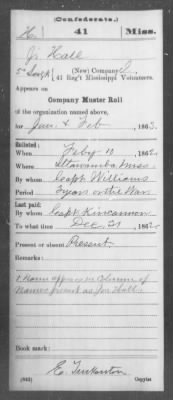 (Confederate.)
H. 41 Miss.
J. Hall
(New) Company C,
41 Reg't Mississippi Volunteers.
Appears on
Company Muster Roll
of the organization named above,
for Jan. & Feb, 1863.
Enlisted:
When Feby 10, 1862.
Where Itawamba Miss.
By whom Capt Williams
Period 3 years or the War
Last paid:
By whom Capt Kincannon
To what time Dec 31, 1862.
Present or absent Present
Remarks:
1 Name appears in column of
Names present as Jno Hall.
Book mark:
(642)
Copyist.